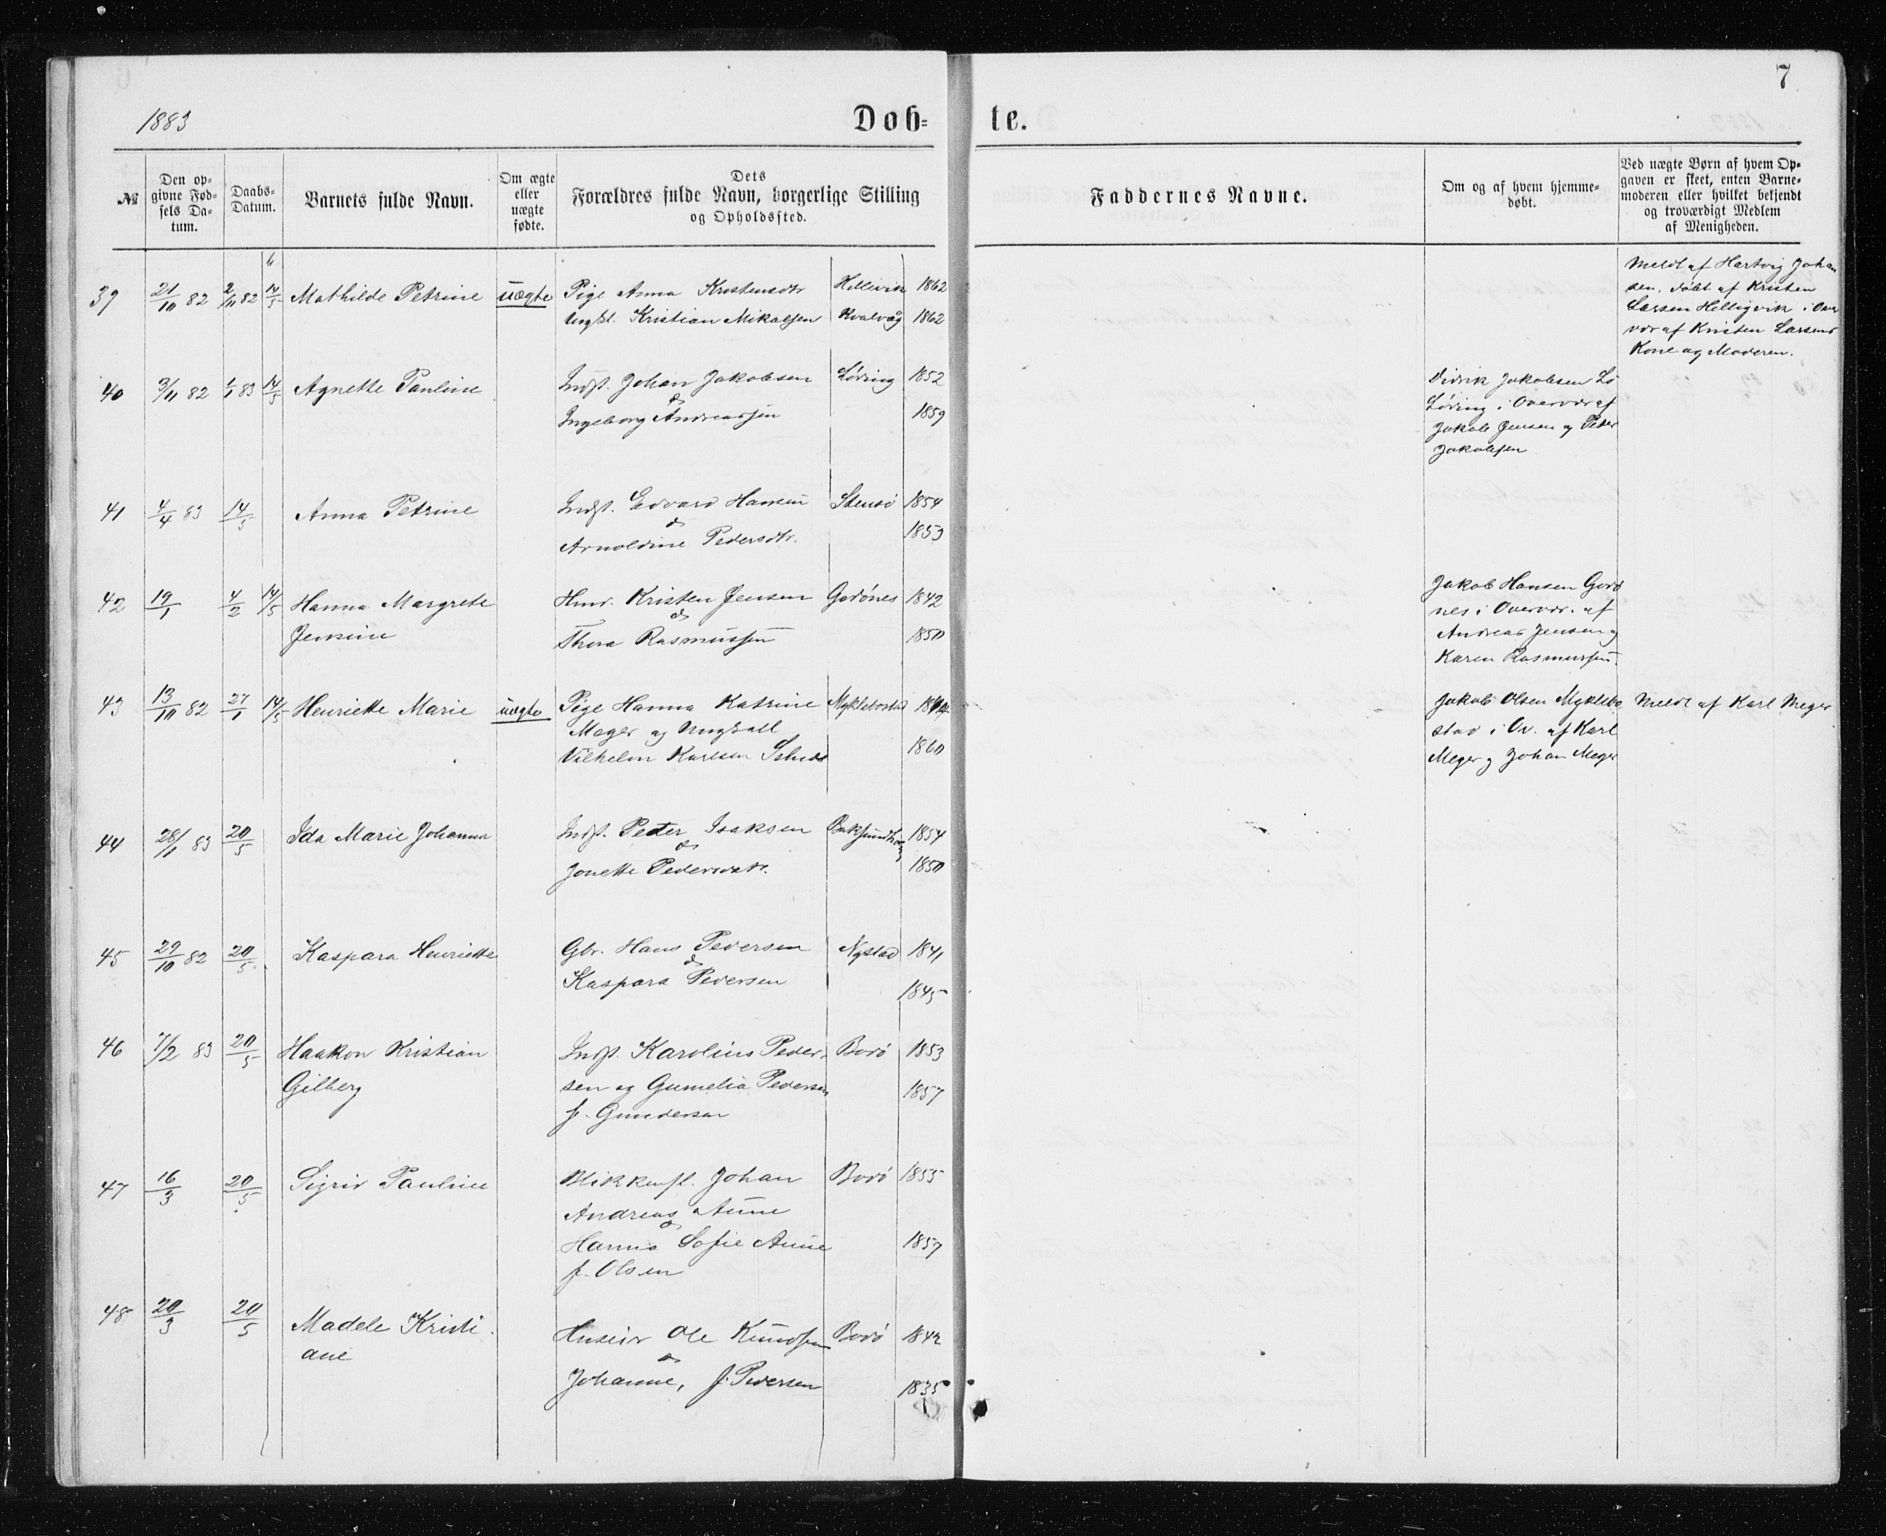 1883
Døb-
te.
7
№
Den op-
givne Fød-
sels Da-
tum.
Daabs-
Datum.
Barnets fulde Navn.
Om ægte
eller
uægte
fødte.
Dets
Forældres fulde Navn, borgerlige Stilling
og Opholdssted.
Faddernes Navne.
Om og af hvem hjemme-
døbt.
Ved uægte Børn af hvem Op-
gaven er skeet, enten Barne-
moderen eller hvilket bekjendt
og troværdigt Medlem
af Menigheden.
39 21/10 82 2/11 82 14/5 Mathilde Petrine uægte Pige Anna Kristensdtr Hillevik 1862
Ungkl. Kristian Mikalsen Kvalvåg 1862
Meldt af Hartvig Johan
sen. døbt af Kristen
Larsen Helligvik i Over
vær af Kristen Larsens
Kone og Moderen.
40 3/11 82 1/1 83 14/5 Agnette Pauline Indst. Johan Jakobsen Løding 1852
&
Ingeborg Andreassen 1859
Didrik Jakobsen Lø
Løding i Overvær af
Jakob Jensen og Peder
Jakobsen
41 4/4 83 14/5 Anna Petrine Indst. Edvard Hansen Stensø 1854
&
Arnoldine Pedersdtr. 1853
42 19/1 4/2 14/5 Hanna Margrete Hmd. Kristen Jensen Godønes 1842
Jensine &
Thora Rasmussen 1850
Jakob Hansen Godø
nes i Overvær. af
Andreas Jensen og
Karen Rasmussen.
43 13/10 82 27/1 14/5 Henriette Marie uægte Pige Hanna Katrine Myklebostad
Meger og Ungkall
Vilhelm Karlsen 1860
Jakob Olsen Myklebo
stad i Ov. af Karl
Meger og Johan Meger
Meldt af Karl Meger
44 28/1 83 20/5 Ida Marie Johanna Indst. Peder Isaksen 1854
&
Jonette Pedersdatr. 1850
45 29/10 82 20/5 Kaspara Henriette Gbr. Hans Pedersen Nystad 1841
&
Kaspara Pedersen 1845
46 7/2 83 20/5 Haakon Kristian Indst. Karolius Peder- Bodø 1853
Gilberg sen og Gumelia Pedersen 1857
f. Gundersen
47 16/3 20/5 Sigrid Pauline Blikkensl. Johan Bodø 1855
Andreas Aune
&
Hanna Sofie Aune 1857
f. Olsen
48 20/3 20/5 Madele Kristi
ane
Huseier Ole Knudsen Bodø 1842
&
Johanne, f. Pedersen 1835